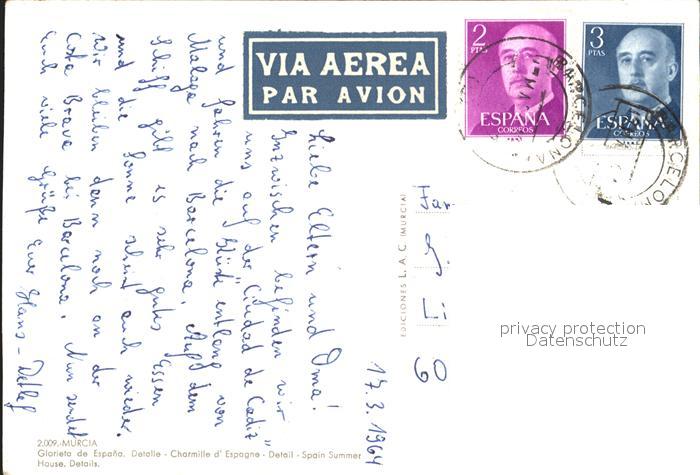 VIA AEREA
PAR AVION
2
PTAS
ESPAÑA
CORREOS
3
PTAS
ESPAÑA
CORREOS
BARCELONA
BARCELONA
17.3.1964
Liebe Eltern und Oma!
Inzwischen befinden wir
uns auf der "Ciudad de Cadiz"
und fahren die Küste entlang von
Malaga nach Barcelona. Auf dem
Schiff gibt es sehr gutes Essen
und die Sonne scheint auch wieder.
Wir bleiben dann noch an der
Costa Brava bei Barcelona. Nun sendet
Euch viele Grüße Euer Hans-Detlef
EDICIONES L.A.C. (MURCIA)
Fam
60
privacy protection
Datenschutz
2.009.-MURCIA
Glorieta de España. Detalle - Charmille d' Espagne - Detail - Spain Summer
House. Details.